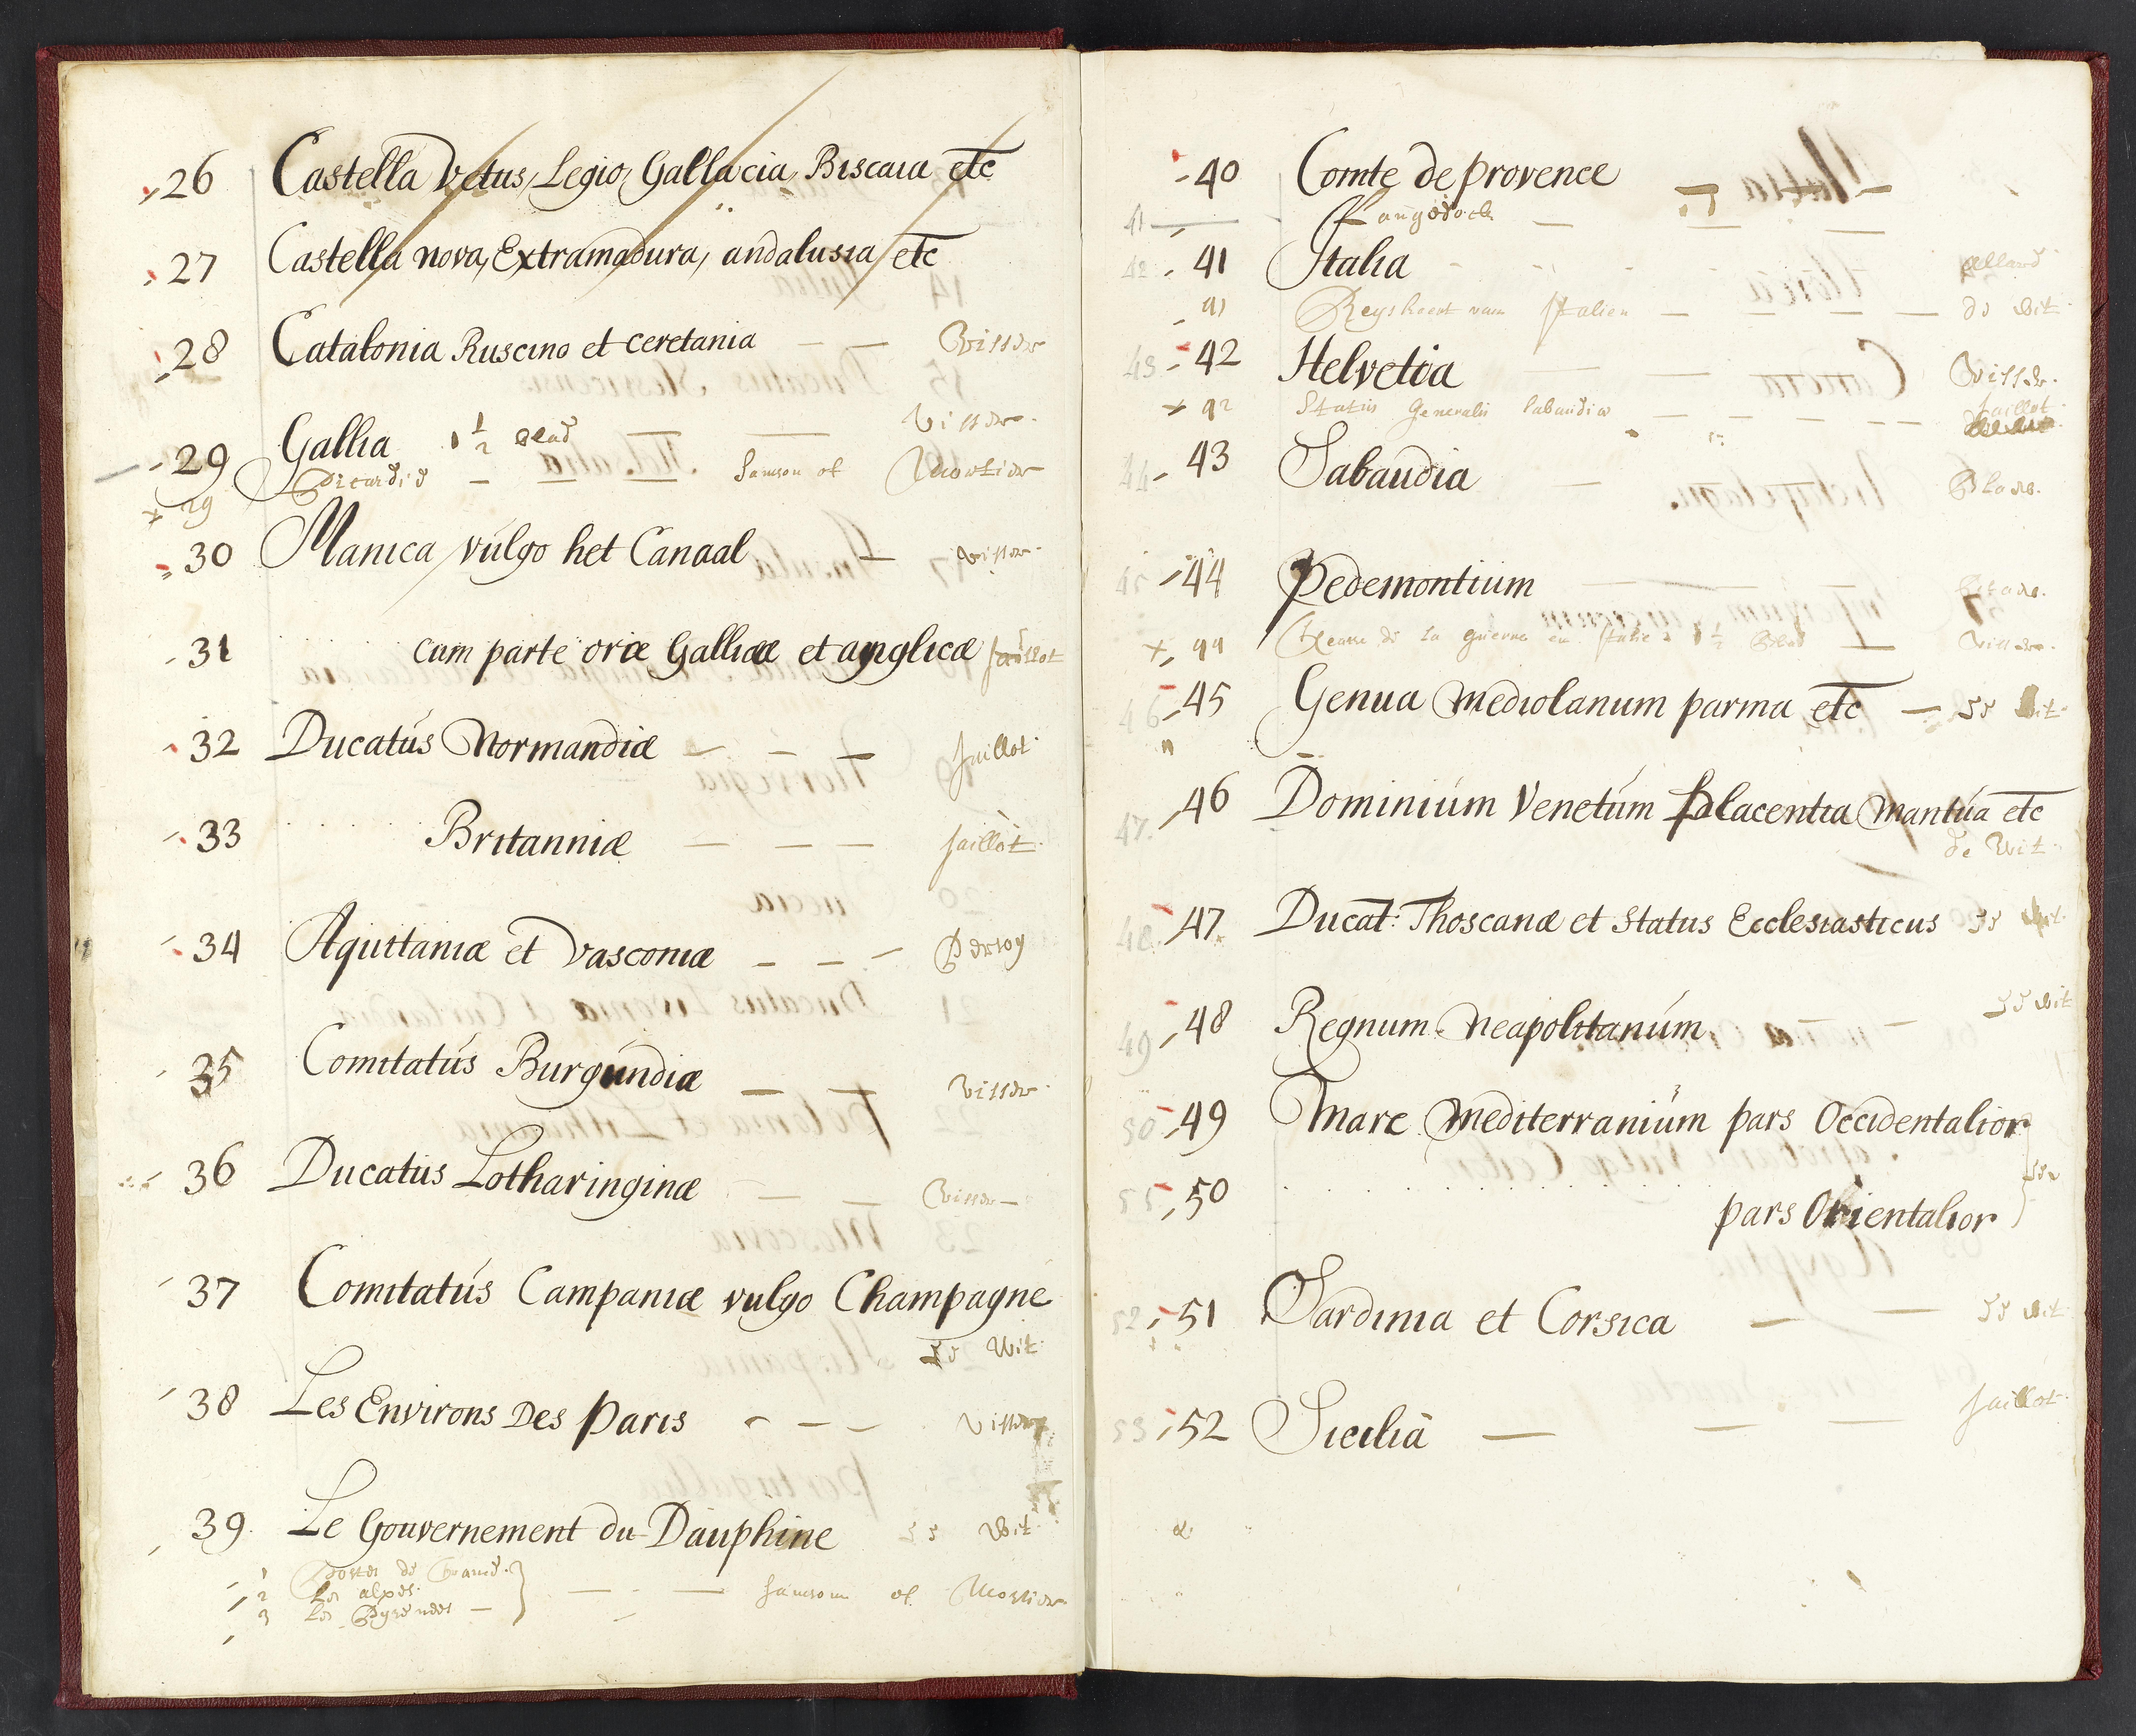 26 Castella Vetus, Legio, Gallacia, Biscaia etc
27 Castella nova, Extramadura, andalusia etc
28 Catalonia Ruscino et ceretania — — Visser
29 Gallia 1 1/2 blad — Visser
29 Picardie — Sanson et Mortier
30 Manica vulgo het Canaal — Visser
31 cum parte oræ Gallicæ et anglicæ Jaillot
32 Ducatus Normandiæ — — — Jaillot
33 Britanniæ — — — Jaillot
34 Aquitaniæ et Vasconiæ — — —
35 Comitatus Burgundiæ — — Visser
36 Ducatus Lotharinginæ — — Visser
37 Comitatus Campaniæ vulgo Champagne
de Wit
38 Les Environs Des Paris — — — Visser
39 Le Gouvernement du Dauphine de Wit
1 Postes de
2 les alpes
3 les Pyrenees — Sanson et Mortier
40 Comte de provence
41 Langedock —
42 41 Italia
41 Reyskaart van Italien — de Wit
43 42 Helvetia — Visser
42 Status Generalis Sabaudiæ — Jaillot
44 43 Sabaudia — Blaeu
45 44 Pedemontium — Blaeu
44 Teatre de la guerre en Italie 1 1/2 blad — Visser
46 45 Genua Mediolanum parma etc — de Wit
47 46 Dominium Venetum Placentia Mantua etc
de Wit
48 47 Ducat: Thoscanæ et Status Ecclesiasticus de Wit
49 48 Regnum Neapolitanum — de Wit
50 49 Mare Mediterranium pars Occidentalior
50 pars Orientalior
52 51 Sardinia et Corsica — — de Wit
53 52 Sicilia — — — Jaillot